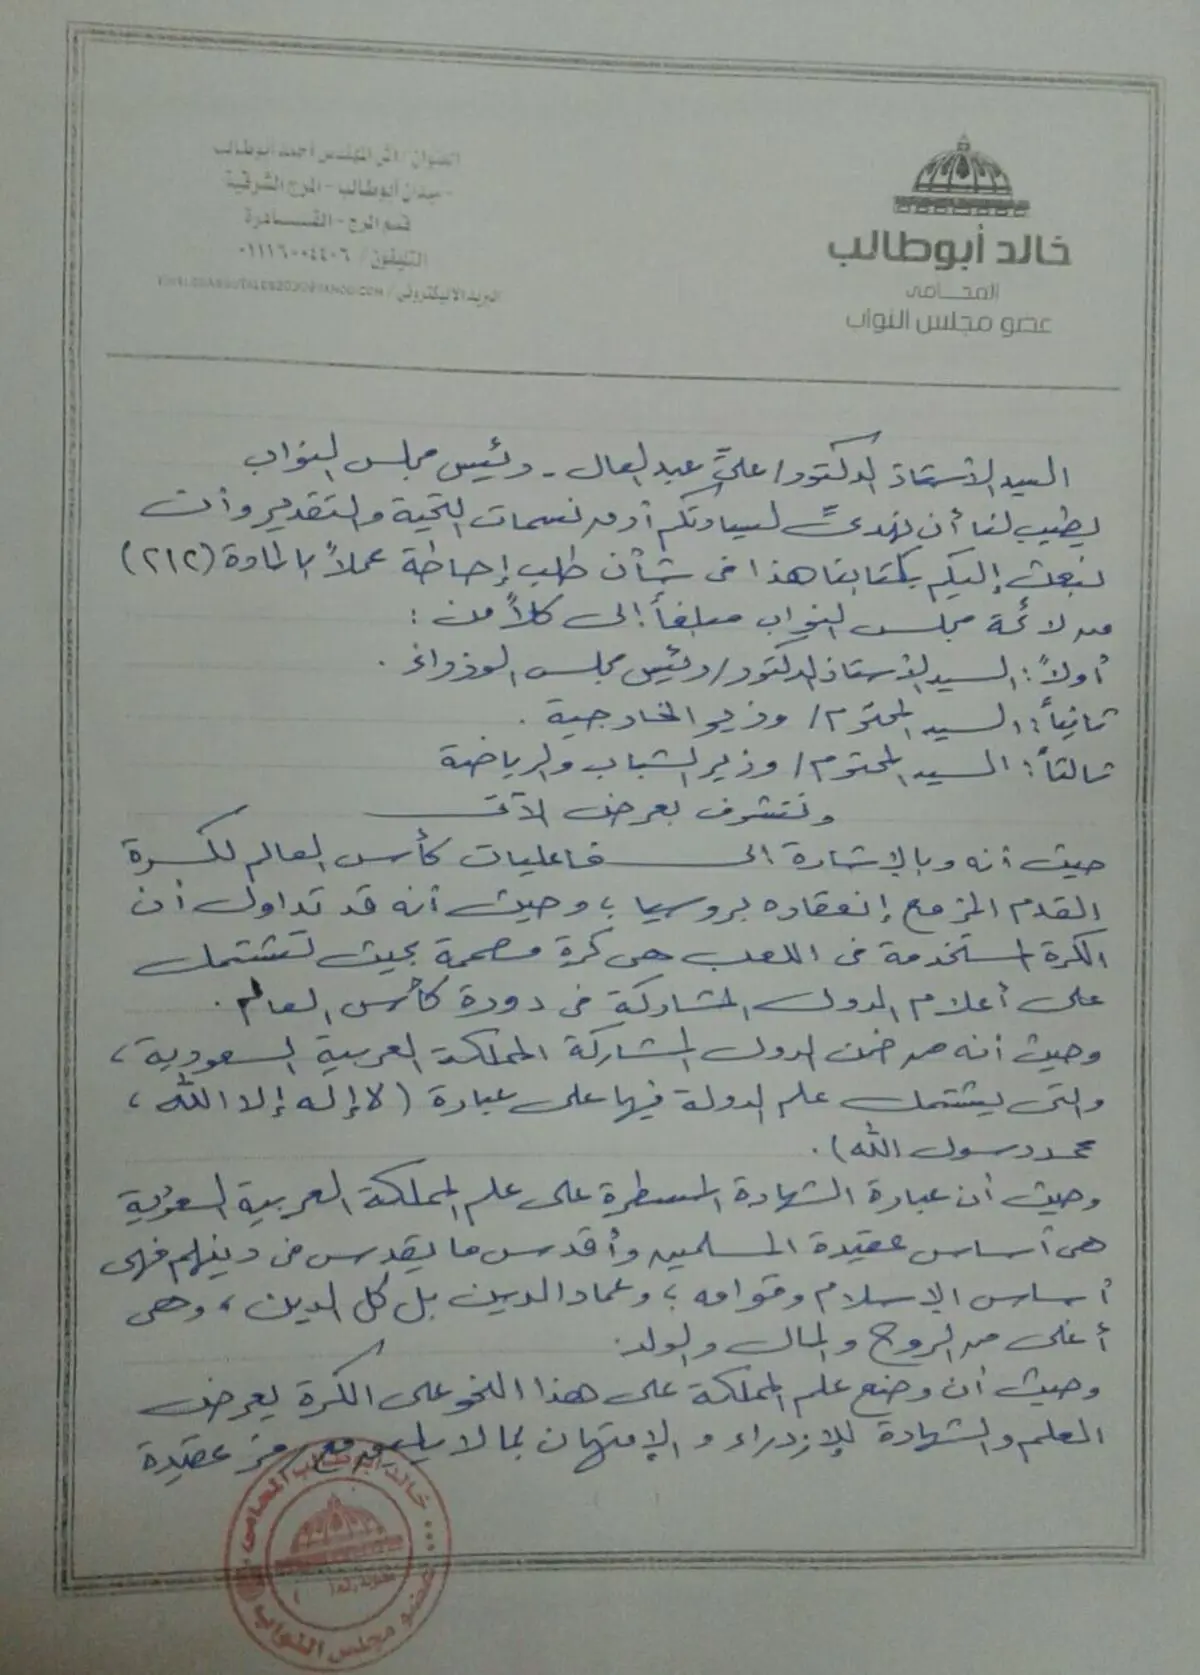 خالد أبوطالب
المحامى
عضو مجلس النواب
العنوان / المهندس أحمد أبوطالب
ميدان أبوطالب - المرج الشرقية
قسم المرج - القاهرة
التليفون / ٠١١١٦٠٠٤٤٠٦
البريد الاليكتروني /
السيد الأستاذ الدكتور/ علي عبد العال - رئيس مجلس النواب
يطيب لنا أن نهدى لسيادتكم أرق نسمات التحية والتقدير وأن
نبعث إليكم بكتابنا هذا فى شأن طلب إحاطة عملاً بالمادة (٢١٢)
من لائحة مجلس النواب مبلغاً إلى كلاً من :
أولاً : السيد الأستاذ الدكتور/ رئيس مجلس الوزراء .
ثانياً : السيد المحترم / وزير الخارجية .
ثالثاً : السيد المحترم / وزير الشباب والرياضة
ونتشرف بعرض الآتى
حيث أنه وبالإشارة إلى فاعليات كأس العالم لكرة
القدم المزمع إنعقاده بروسيا ، وحيث أنه قد تداول أن
الكرة المستخدمة فى اللعب هى كرة مصممة بحيث تشتمل
على أعلام الدول المشاركة فى دورة كأس العالم .
وحيث أنه من ضمن الدول المشاركة المملكة العربية السعودية ،
والتى يشتمل علم الدولة فيها على عبارة ( لا إله إلا الله ،
محمد رسول الله ) .
وحيث أن عبارة الشهادة المسطرة على علم المملكة العربية السعودية
هى أساس عقيدة المسلمين وأقدس ما يقدس من دينهم فهى
أساس الإسلام وقوامه ، وعماد الدين بل كل الدين ، وهى
أغلى من الروح والمال والولد .
وحيث أن وضع علم المملكة على هذا النحو على الكرة يعرض
العلم والشهادة للإزدراء والإمتهان بما لا يليق مع رمز عقيدة
خالد أبوطالب المحامى
عضو مجلس النواب